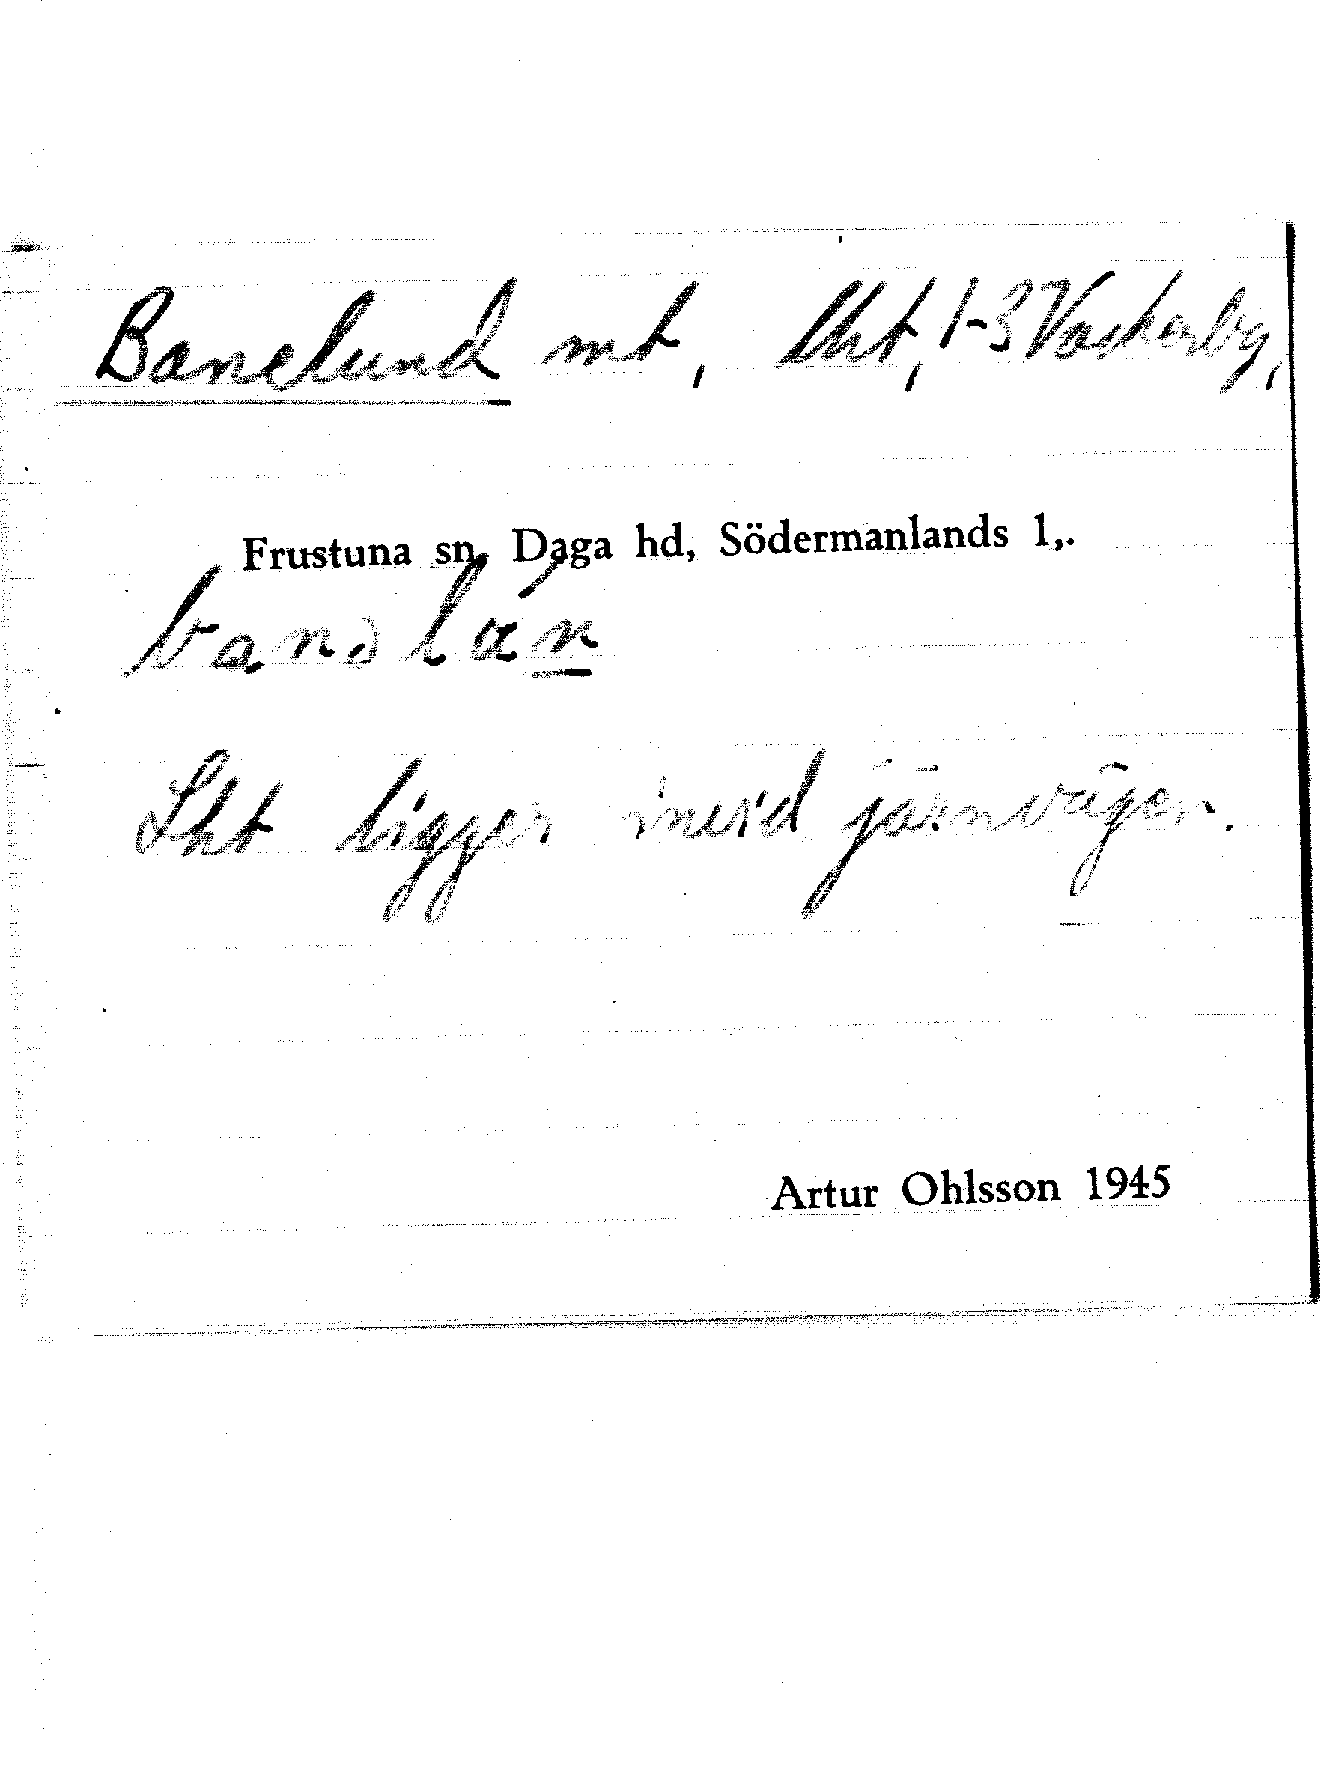 Banelund mt, lht, 1-3 Vackerby,
Frustuna sn, Daga hd, Södermanlands l,.
banəlún
Lht ligger invid järnvägen.
Artur Ohlsson 1945